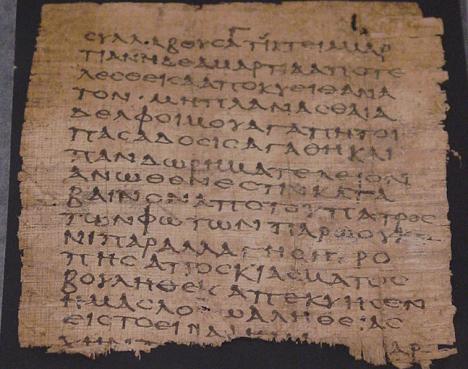 ϹΥΛΛΑΒΟΥϹΑΤΙΚΤΕΙΑΜΑΡ
ΤΙΑΝΗΔΕΑΜΑΡΤΙΑΑΠΟΤΕ
ΛΕϹΘΕΙϹΑΑΠΟΚΥΕΙΘΑΝΑ
ΤΟΝ·ΜΗΠΛΑΝΑϹΘΑΙΑ
ΔΕΛΦΟΙΜΟΥΑΓΑΠΗΤΟΙ
ΠΑϹΑΔΟϹΙϹΑΓΑΘΗΚΑΙ
ΠΑΝΔΩΡΗΜΑΤΕΛΕΙΟΝ
ΑΝΩΘΕΝΕϹΤΙΝΚΑΤΑ
ΒΑΙΝΟΝΑΠΟΤΟΥΠΑΤΡΟϹ
ΤΩΝΦΩΤΩΝΠΑΡΩΟΥΚ
ΝΙΠΑΡΑΛΛΑΓΗ
ΠΗϹΑΠΟϹΚΙΑϹΜΑΤΟϹ
ΒΟΥΛΗΘΕΙϹΑΠΕΚΥΗϹΕΝ
ΗΜΑϹΛΟΓΩΑΛΗΘΕΙΑϹ
ΕΙϹΤΟΕΙΝΑΙ